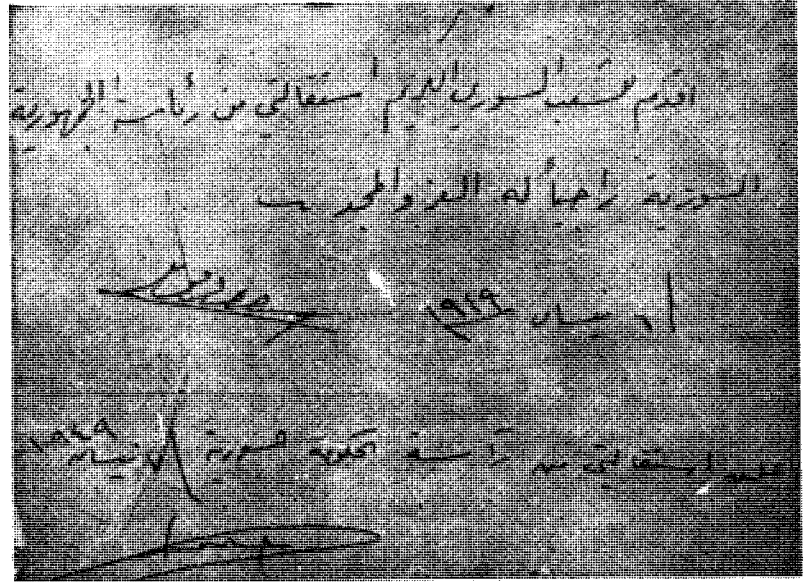 اقدم للشعب السوري الكريم استقالتي من رئاسة الجمهورية
السورية راجياً له العز والمجد
٦ نيسان ١٩٤٩
استقالتي من رآسة الحكومة السورية نيسان ١٩٤٩